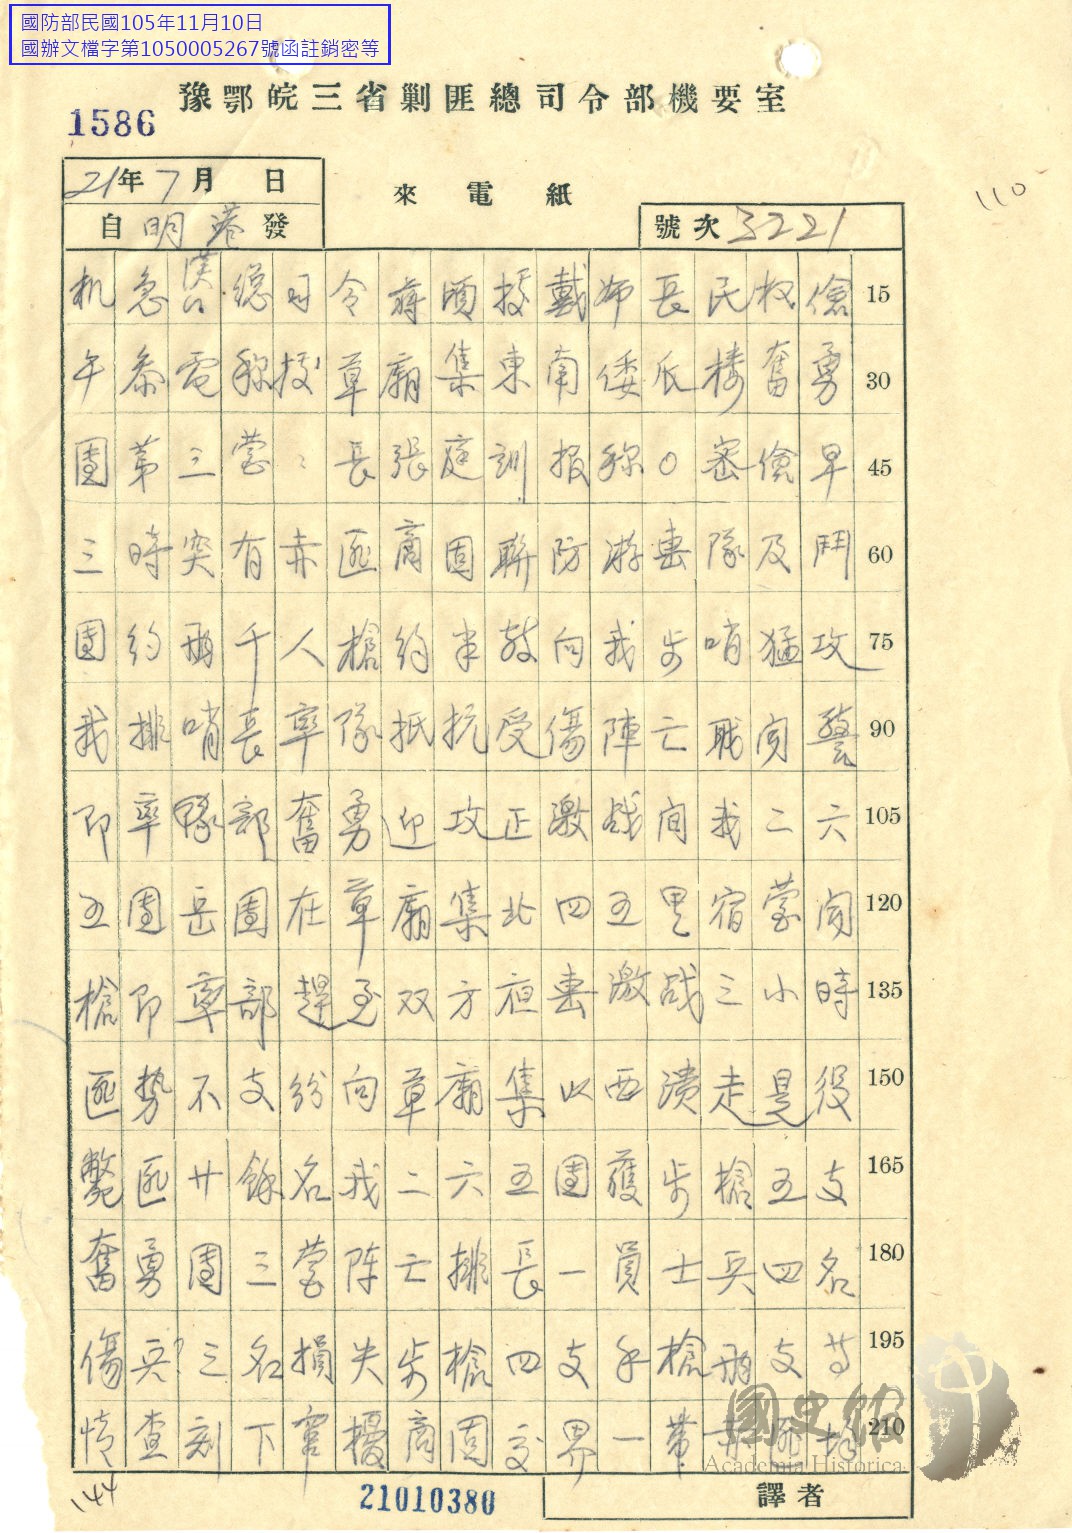 國防部民國105年11月10日
國辦文檔字第1050005267號函註銷密等
豫鄂皖三省剿匪總司令部機要室
1586
21年7月 日
來電紙
110
自明港發
號次3221
机急漢口總司令蔣頃接戴師長民权儉 15
午叅電称接草廟集東南倭爪楼奮勇 30
團第三營々長張庭訓报称○密儉早 45
三時突有赤匪商固聯防游击隊及鬥 60
團約兩千人槍約半数向我步哨猛攻 75
我排哨長率隊抵抗受傷陣亡職闻警 90
即率隊部奮勇迎攻正激战间我二六 105
五團岳團在草廟集北四五里宿营闻 120
槍即率部趕至双方夜击激战三小時 135
匪勢不支紛向草廟集以西潰走是役 150
斃匪廿餘名我二六五團獲步槍五支 165
奮勇團三营陣亡排長一員士兵四名 180
傷兵三名損失步槍四支手槍兩支等 195
情查刻下竄擾商固交界一带赤匪 210
國史館
Academia Historica
144
21010380
譯者